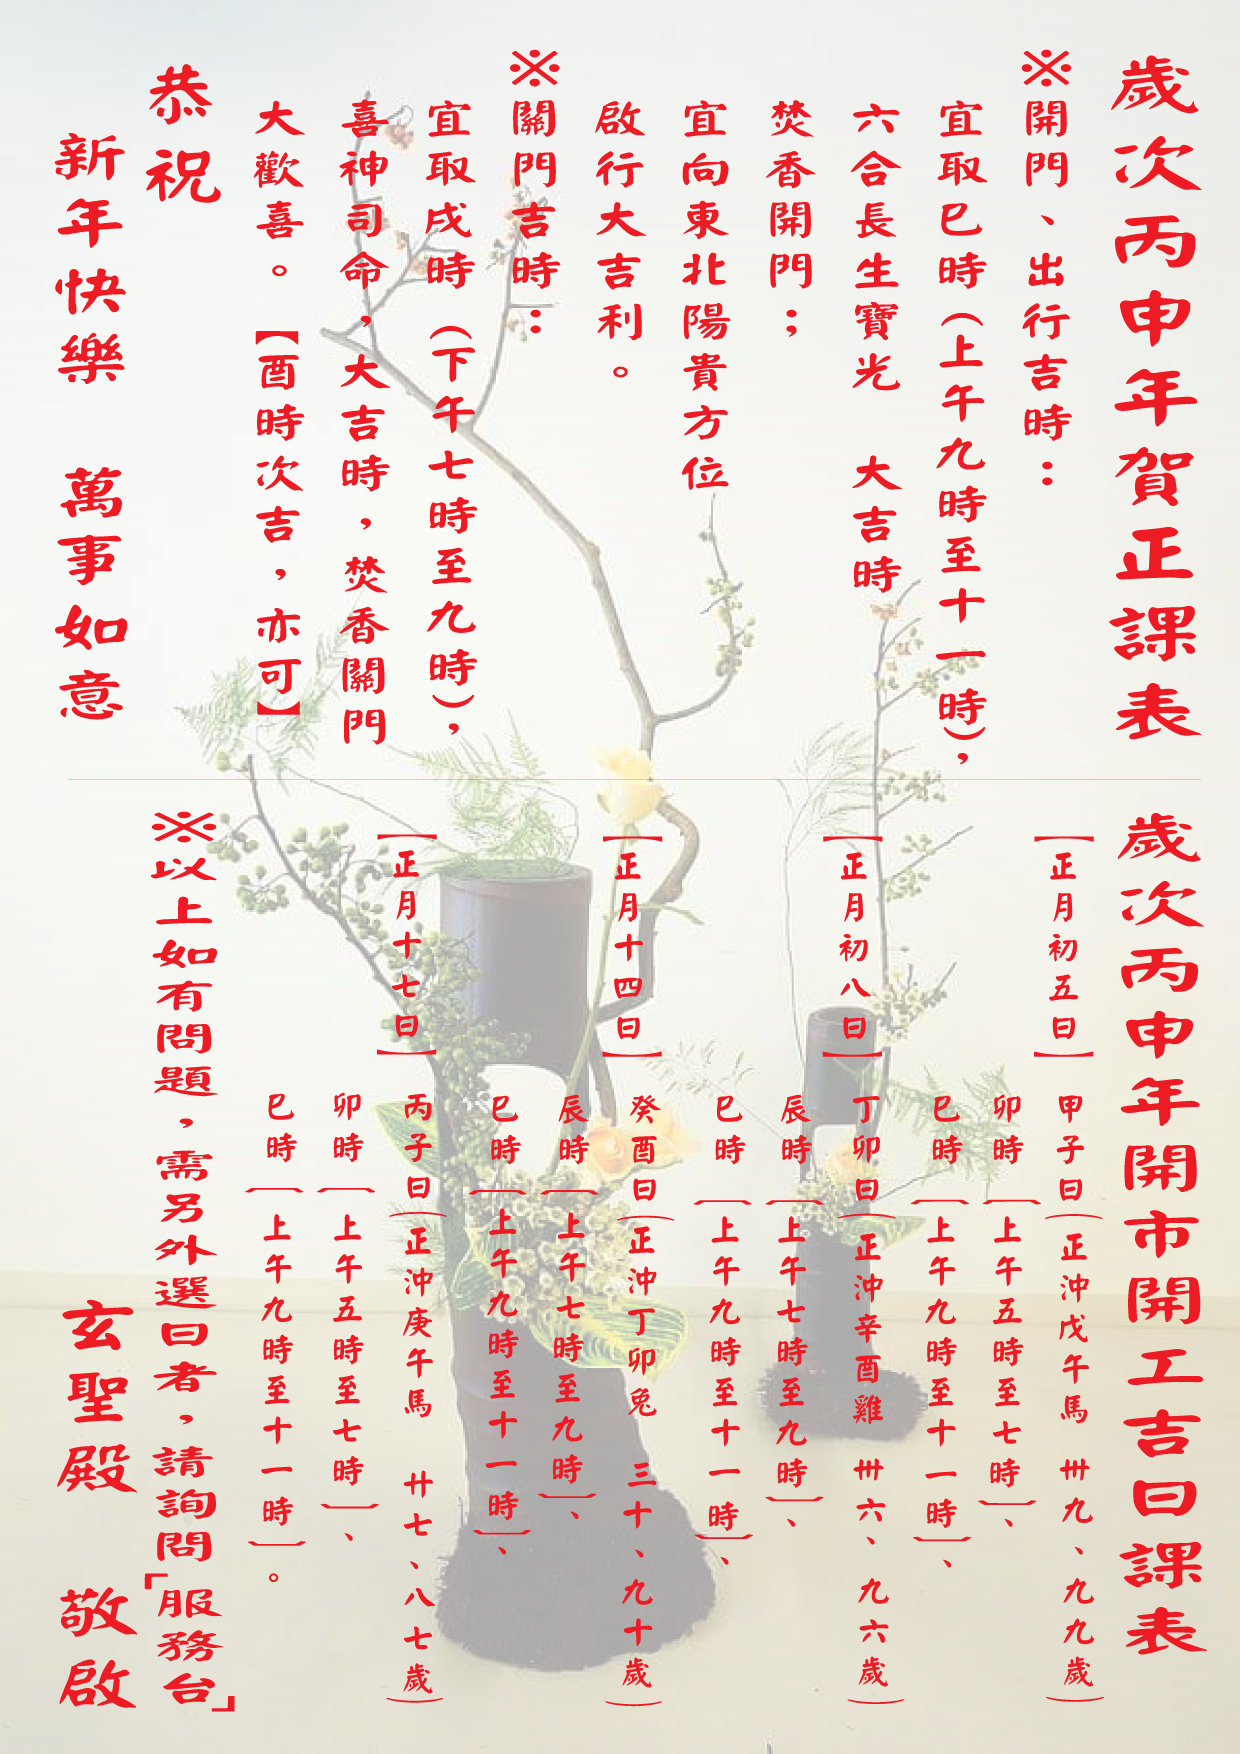 歲次丙申年賀正課表
※開門、出行吉時：
宜取巳時（上午九時至十一時），
六合長生寶光　大吉時
焚香開門；
宜向東北陽貴方位
啟行大吉利。
※關門吉時：
宜取戌時（下午七時至九時），
喜神司命，大吉時，焚香關門
大歡喜。【酉時次吉，亦可】
恭祝
新年快樂　萬事如意
歲次丙申年開市開工吉日課表
【正月初五日】甲子日（正沖戊午馬　卌九、九九歲）
卯時（上午五時至七時）、
巳時（上午九時至十一時）、
【正月初八日】丁卯日（正沖辛酉雞　卌六、九六歲）
辰時（上午七時至九時）、
巳時（上午九時至十一時）、
【正月十四日】癸酉日（正沖丁卯兔　三十、九十歲）
辰時（上午七時至九時）、
巳時（上午九時至十一時）、
【正月十七日】丙子日（正沖庚午馬　廿七、八七歲）
卯時（上午五時至七時）、
巳時（上午九時至十一時）。
※以上如有問題，需另外選日者，請詢問「服務台」
玄聖殿　敬啟